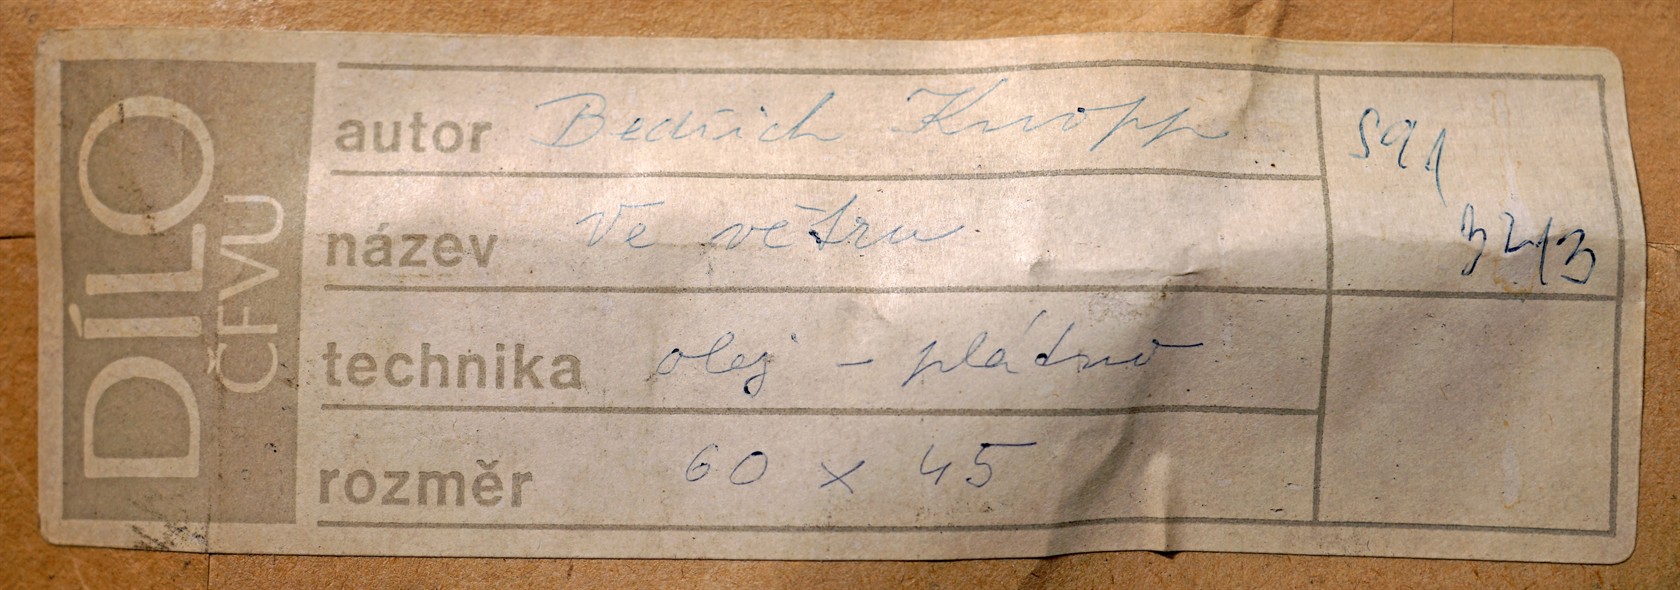 DÍLO
ČFVU
autor Bedřich Knopp
název Ve větru
technika olej - plátno
rozměr 60 x 45